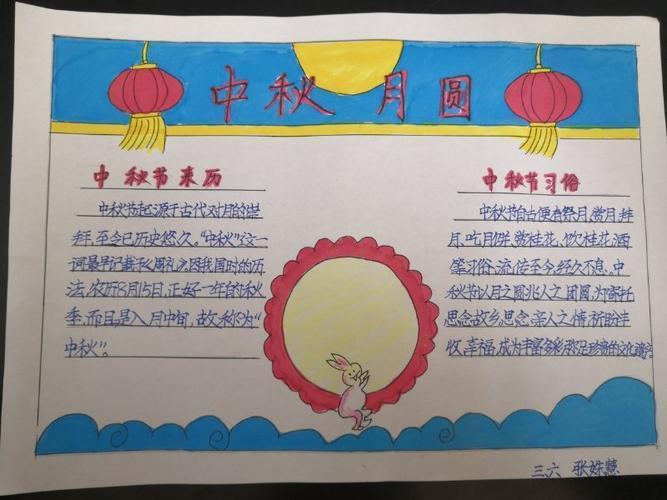 中秋 月圆
中秋节来历
中秋节起源于古代对月的崇
拜,至今已历史悠久。"中秋"这一
词最早记载于《周礼》,因我国时的历
法,农历8月15日,正好一年的秋
季,而且是八月中旬,故称为"
中秋"。
中秋节习俗
中秋节自古便有祭月,赏月,拜
月,吃月饼,赏桂花,饮桂花,酒
等习俗,流传至今,经久不息。中
秋节以月之圆兆人之团圆,为寄托
思念故乡,思念亲人之情,祈盼丰
收,幸福,成为丰富多彩,弥足珍贵的文化遗产
三六 张姝慧